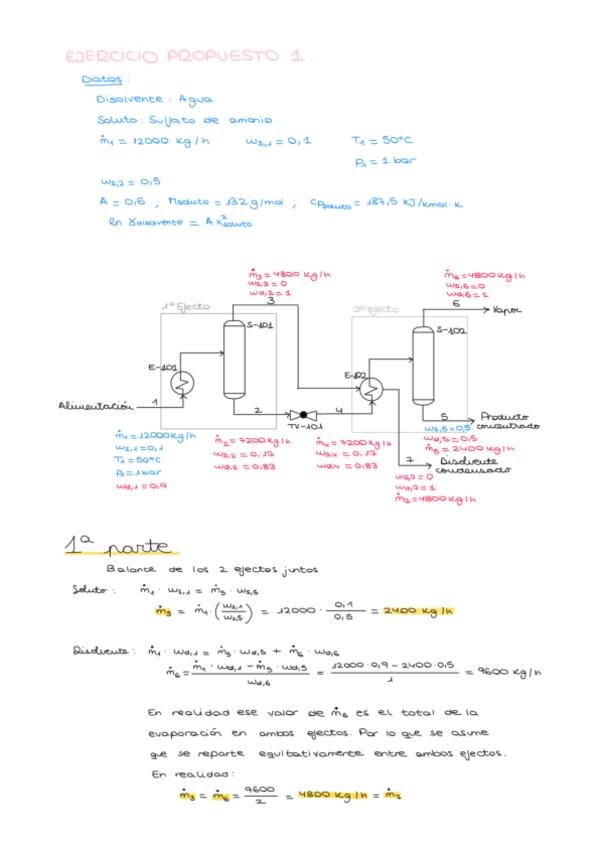 EJERCICIO PROPUESTO 1.
Datos:
Disolvente: Agua
Soluto: Sulfato de amonio
ṁ₁ = 12000 Kg/h   ws,1 = 0,1   T₁ = 50°C
P₁ = 1 bar
ws,2 = 0,5
A = 0,6 ; Msoluto = 132 g/mol ; CPsoluto = 187,5 KJ/kmol·K
ln γdisolvente = A x²soluto
ṁ3 = 4800 Kg/h
ws,3 = 0
wd,3 = 1
3
ṁ6 = 4800 Kg/h
ws,6 = 0
wd,6 = 1
6
Vapor
1º Efecto
S-101
E-101
2º efecto
S-102
E-102
Alimentación
1
2
TV-101
4
5
Producto concentrado
7
Disolvente condensado
ṁ1 = 12000 Kg/h
ws,1 = 0,1
T1 = 50°C
P1 = 1 bar
wd,1 = 0,9
ṁ2 = 7200 Kg/h
ws,2 = 0,17
wd,2 = 0,83
ṁ4 = 7200 Kg/h
ws,4 = 0,17
wd,4 = 0,83
ws,5 = 0,5
wd,5 = 0,5
ṁ5 = 2400 Kg/h
ws,7 = 0
wd,7 = 1
ṁ7 = 4800 Kg/h
1ª parte
Balance de los 2 efectos juntos
Soluto: ṁ1 · ws,1 = ṁ5 · ws,5
ṁ5 = ṁ1 · (ws,1/ws,5) = 12000 · 0,1/0,5 = 2400 Kg/h
Disolvente: ṁ1 · wd,1 = ṁ5 · wd,5 + ṁ6 · wd,6
ṁ6 = (ṁ1 · wd,1 − ṁ5 · wd,5)/wd,6 = (12000 · 0,9 − 2400 · 0,5)/1 = 9600 Kg/h
En realidad ese valor de ṁ6 es el total de la
evaporación en ambos efectos. Por lo que se asume
que se reparte equitativamente entre ambos efectos.
En realidad:
ṁ3 = ṁ6 = 9600/2 = 4800 Kg/h = ṁ7